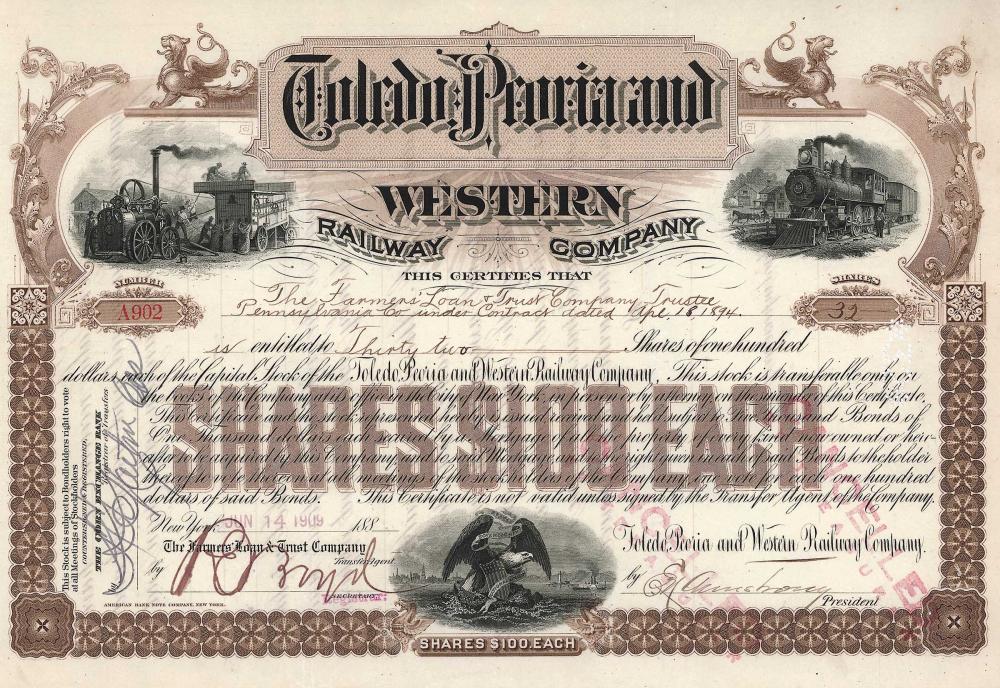 Toledo, Peoria and
WESTERN
RAILWAY COMPANY
THIS CERTIFIES THAT
NUMBER
A902
SHARES
32
The Farmers' Loan & Trust Company, Trustee
Pennsylvania Co under Contract dated Apl. 18 1894.
is entitled to Thirty two Shares of one hundred
dollars each of the Capital Stock of the Toledo Peoria and Western Railway Company. This stock is transferable only on
the books of the Company at its office in the City of New York in person or by attorney on surrender of this Certificate.
This certificate and the stock represented hereby is issued, received and held subject to
and Bonds of
One Thousand dollars each secured by a Mortgage of all the property of every kind now owned or here-
after to be acquired by this Company and to said Mortgage and the right given in each said Bonds to the holder
thereof to vote meetings of the stockholders of the Company one hundred
dollars of said Bonds. This Certificate is not valid unless signed by the Transfer Agent of the Company.
SHARES $100 EACH
This Stock is subject to Bondholders right to vote
at all Meetings of Stockholders
COUNTERSIGNED & REGISTERED.
THE CORN EXCHANGE BANK
Registrar of Transfers
by
New York JUN 14 1909 188
The Farmers' Loan & Trust Company
Transfer Agent
by R E Boyd
SECRETARY
Toledo Peoria and Western Railway Company.
by E Armstrong
President
CANCELLED
CANCELLED
AMERICAN BANK NOTE COMPANY, NEW YORK.
SHARES $100. EACH